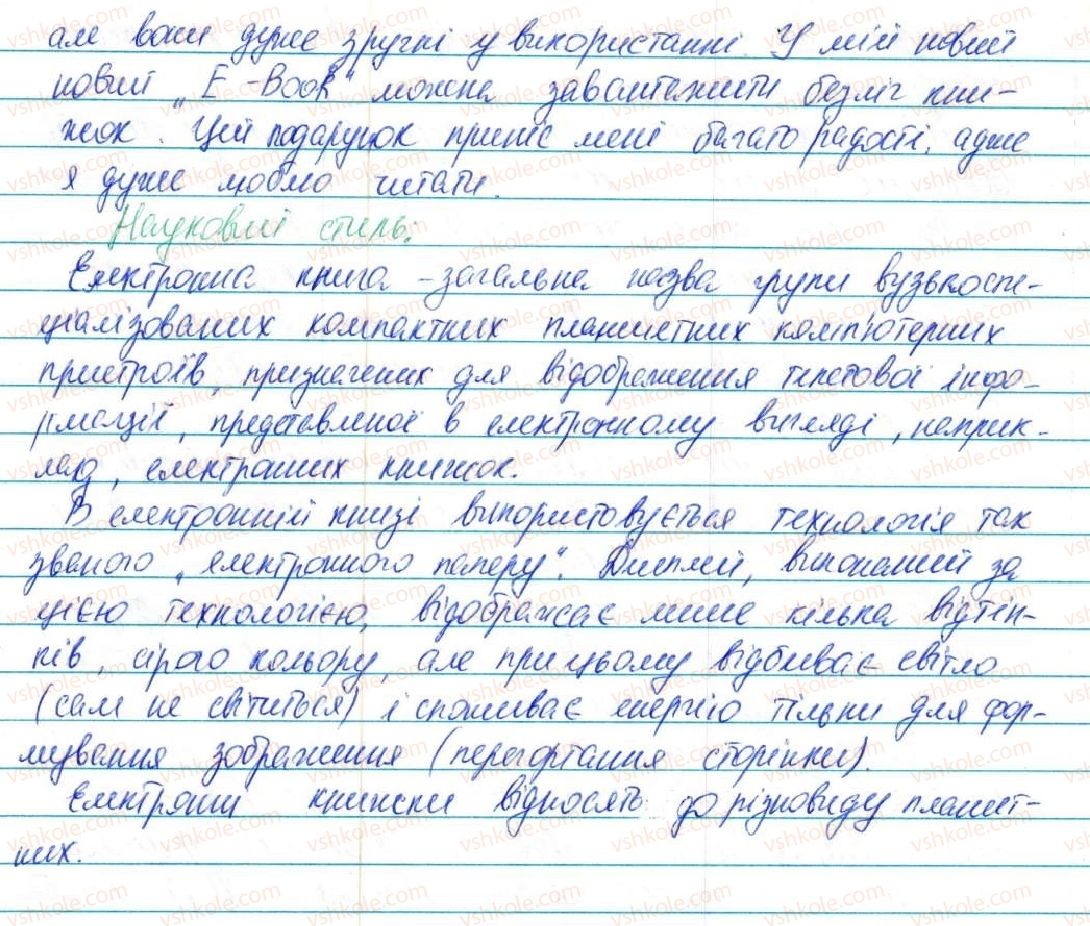 але вони дуже зручні у використанні. У мій новий
новий „E-Book" можна завантажити безліч кни-
жок. Цей подарунок приніс мені багато радості, адже
я дуже люблю читати.
Науковий стиль.
Електронна книга - загальна назва групи вузькоспе-
ціалізованих компактних планшетних комп'ютерних
пристроїв, призначених для відображення текстової інфо-
рмації, представленої в електронному вигляді, наприк-
лад, електронних книжок.
В електронній книзі використовується технологія так
званого „електронного паперу". Дисплей, виконаний за
цією технологією, відображає лише кілька відтін-
ків, сірого кольору, але при цьому відбиває світло
(сам не світиться) і споживає енергію тільки для фор-
мування зображення (перегортання сторінки).
Електронні книжки відносять до різновиду планшет-
них.